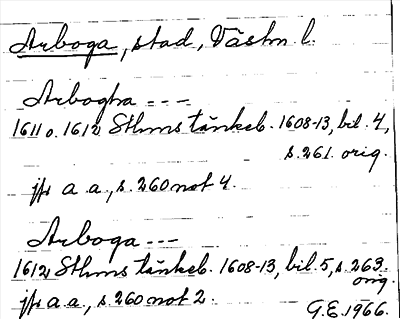 Arboga, stad, Västm l.
Arbogha ---
1611 o. 1612 Sthms tänkeb. 1608-13, bil. 4,
s. 261. orig.
jfr a. a., s. 260 not 4.
Arboga ---
1612 Sthms tänkeb. 1608-13, bil. 5, s. 263.
orig.
jfr a. a., s. 260 not 2.
G.E. 1966.